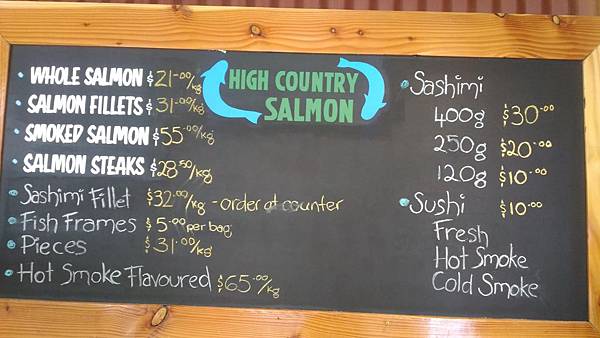 HIGH COUNTRY
SALMON
WHOLE SALMON $21.00/kg
SALMON FILLETS $31.00/kg
SMOKED SALMON $55.00/kg
SALMON STEAKS $28.50/kg
Sashimi Fillet $32.00/kg - order at counter
Fish Frames $5.00 per bag
Pieces $31.00/kg
Hot Smoke Flavoured $65.00/kg
Sashimi
400g $30.00
250g $20.00
120g $10.00
Sushi $10.00
Fresh
Hot Smoke
Cold Smoke